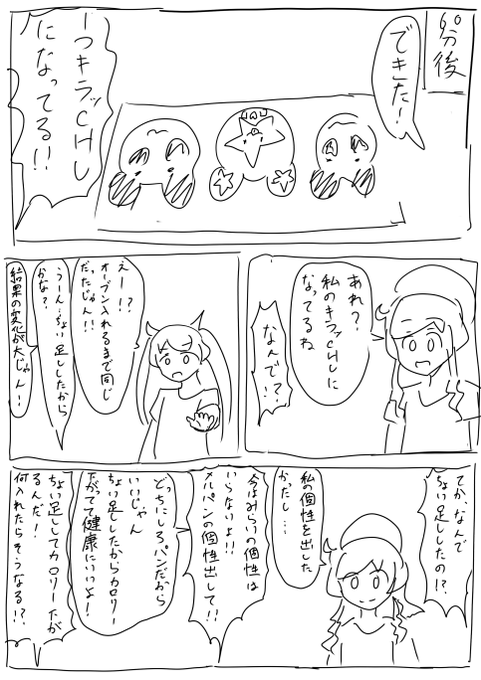 8分後
できた!
一つキラッCHUに
なってる!!
あれ?
私のキラッCHUに
なってるね
なんで!?
えー!?
オーブン入れるまで同じ
だったじゃん!!
うーん…ちょい足ししたから
かな?
結果の変化が大じゃん!
てか、なんで
ちょい足ししたの!?
私の個性を出した
かったし…
今はみらいの個性は
いらないよ!!
メルパンの個性出して!!
どっちにしろパンだから
いいじゃん
ちょい足ししたからカロリー
たがって健康にいいよ!
ちょい足ししてカロリーたが
るんだ!
何入れたらそうなる!?